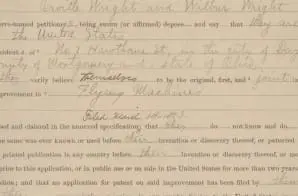 Orville Wright and Wilbur Wright
above-named petitioners, being sworn (or affirmed) depose and say that they are
the United States
resident s of No 7 Hawthorne St, in the city of Day
county of Montgomery and State of Ohio
they verily believe themselves to be the original, first, and joint
improvement in Flying Machines
described and claimed in the annexed specification; that they do not know and do
the same was ever known or used before their invention or discovery thereof, or patented
printed publication in any country before their invention or discovery thereof, or more
prior to this application, or in public use or on sale in the United States for more than two years
; and that no application for patent on said improvement has been filed by